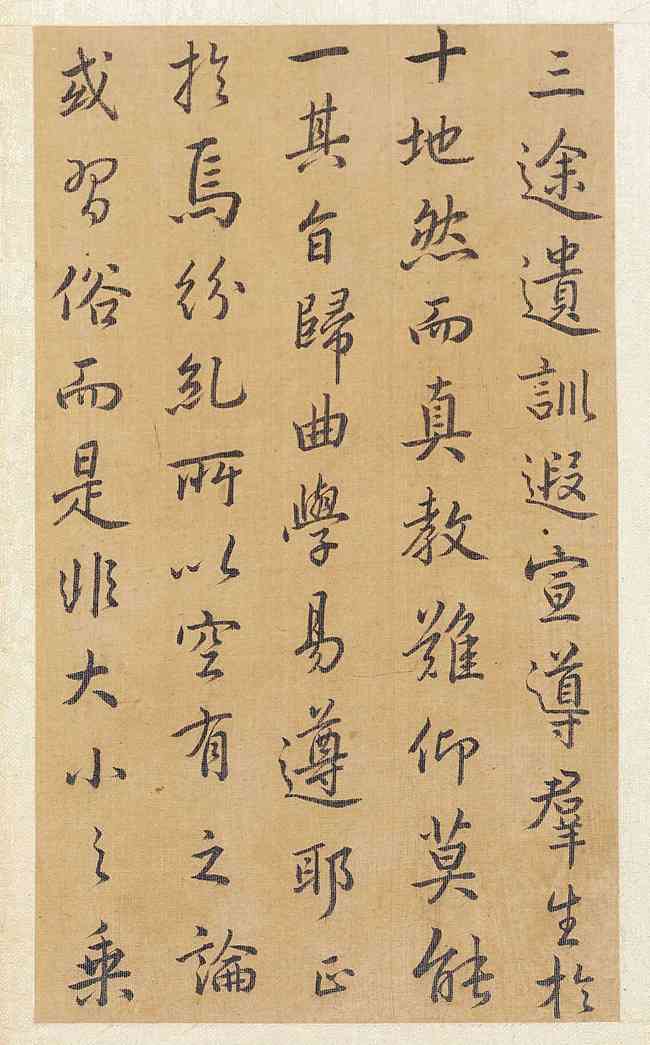 三途遺訓遐宣導羣生於
十地然而真教難仰莫能
一其旨歸曲學易遵耶正
於焉紛糺所以空有之論
或習俗而是非大小之乗